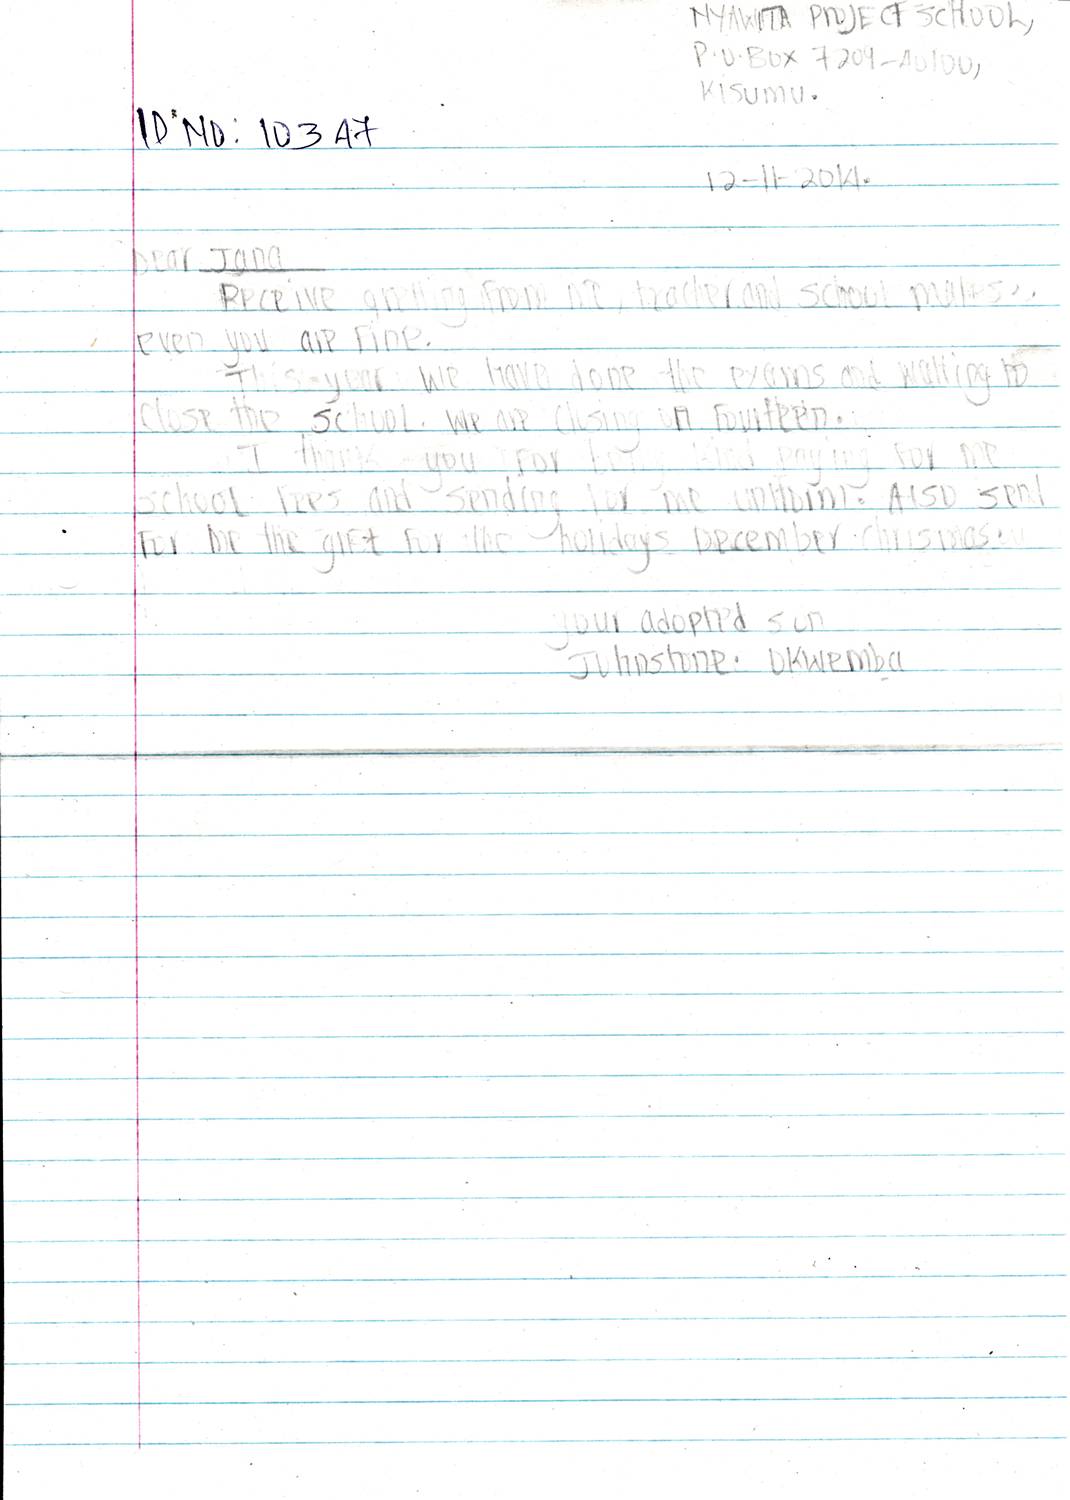 NYAWITA PROJECT SCHOOL,
P.O.Box 7209-40100,
Kisumu.
ID NO: 103 A7
12-11-2014.
Dear Jana
Receive from me, teacher and school
even you are fine.
This year we have done the exams and waiting to
close the school. We are closing on Fourteen.
I thank you For being kind paying For me
school Fees and sending for me uniform. Also send
For me the giFt For the holidays December chrismas.
your adopted son
Johnstone. Okwemba